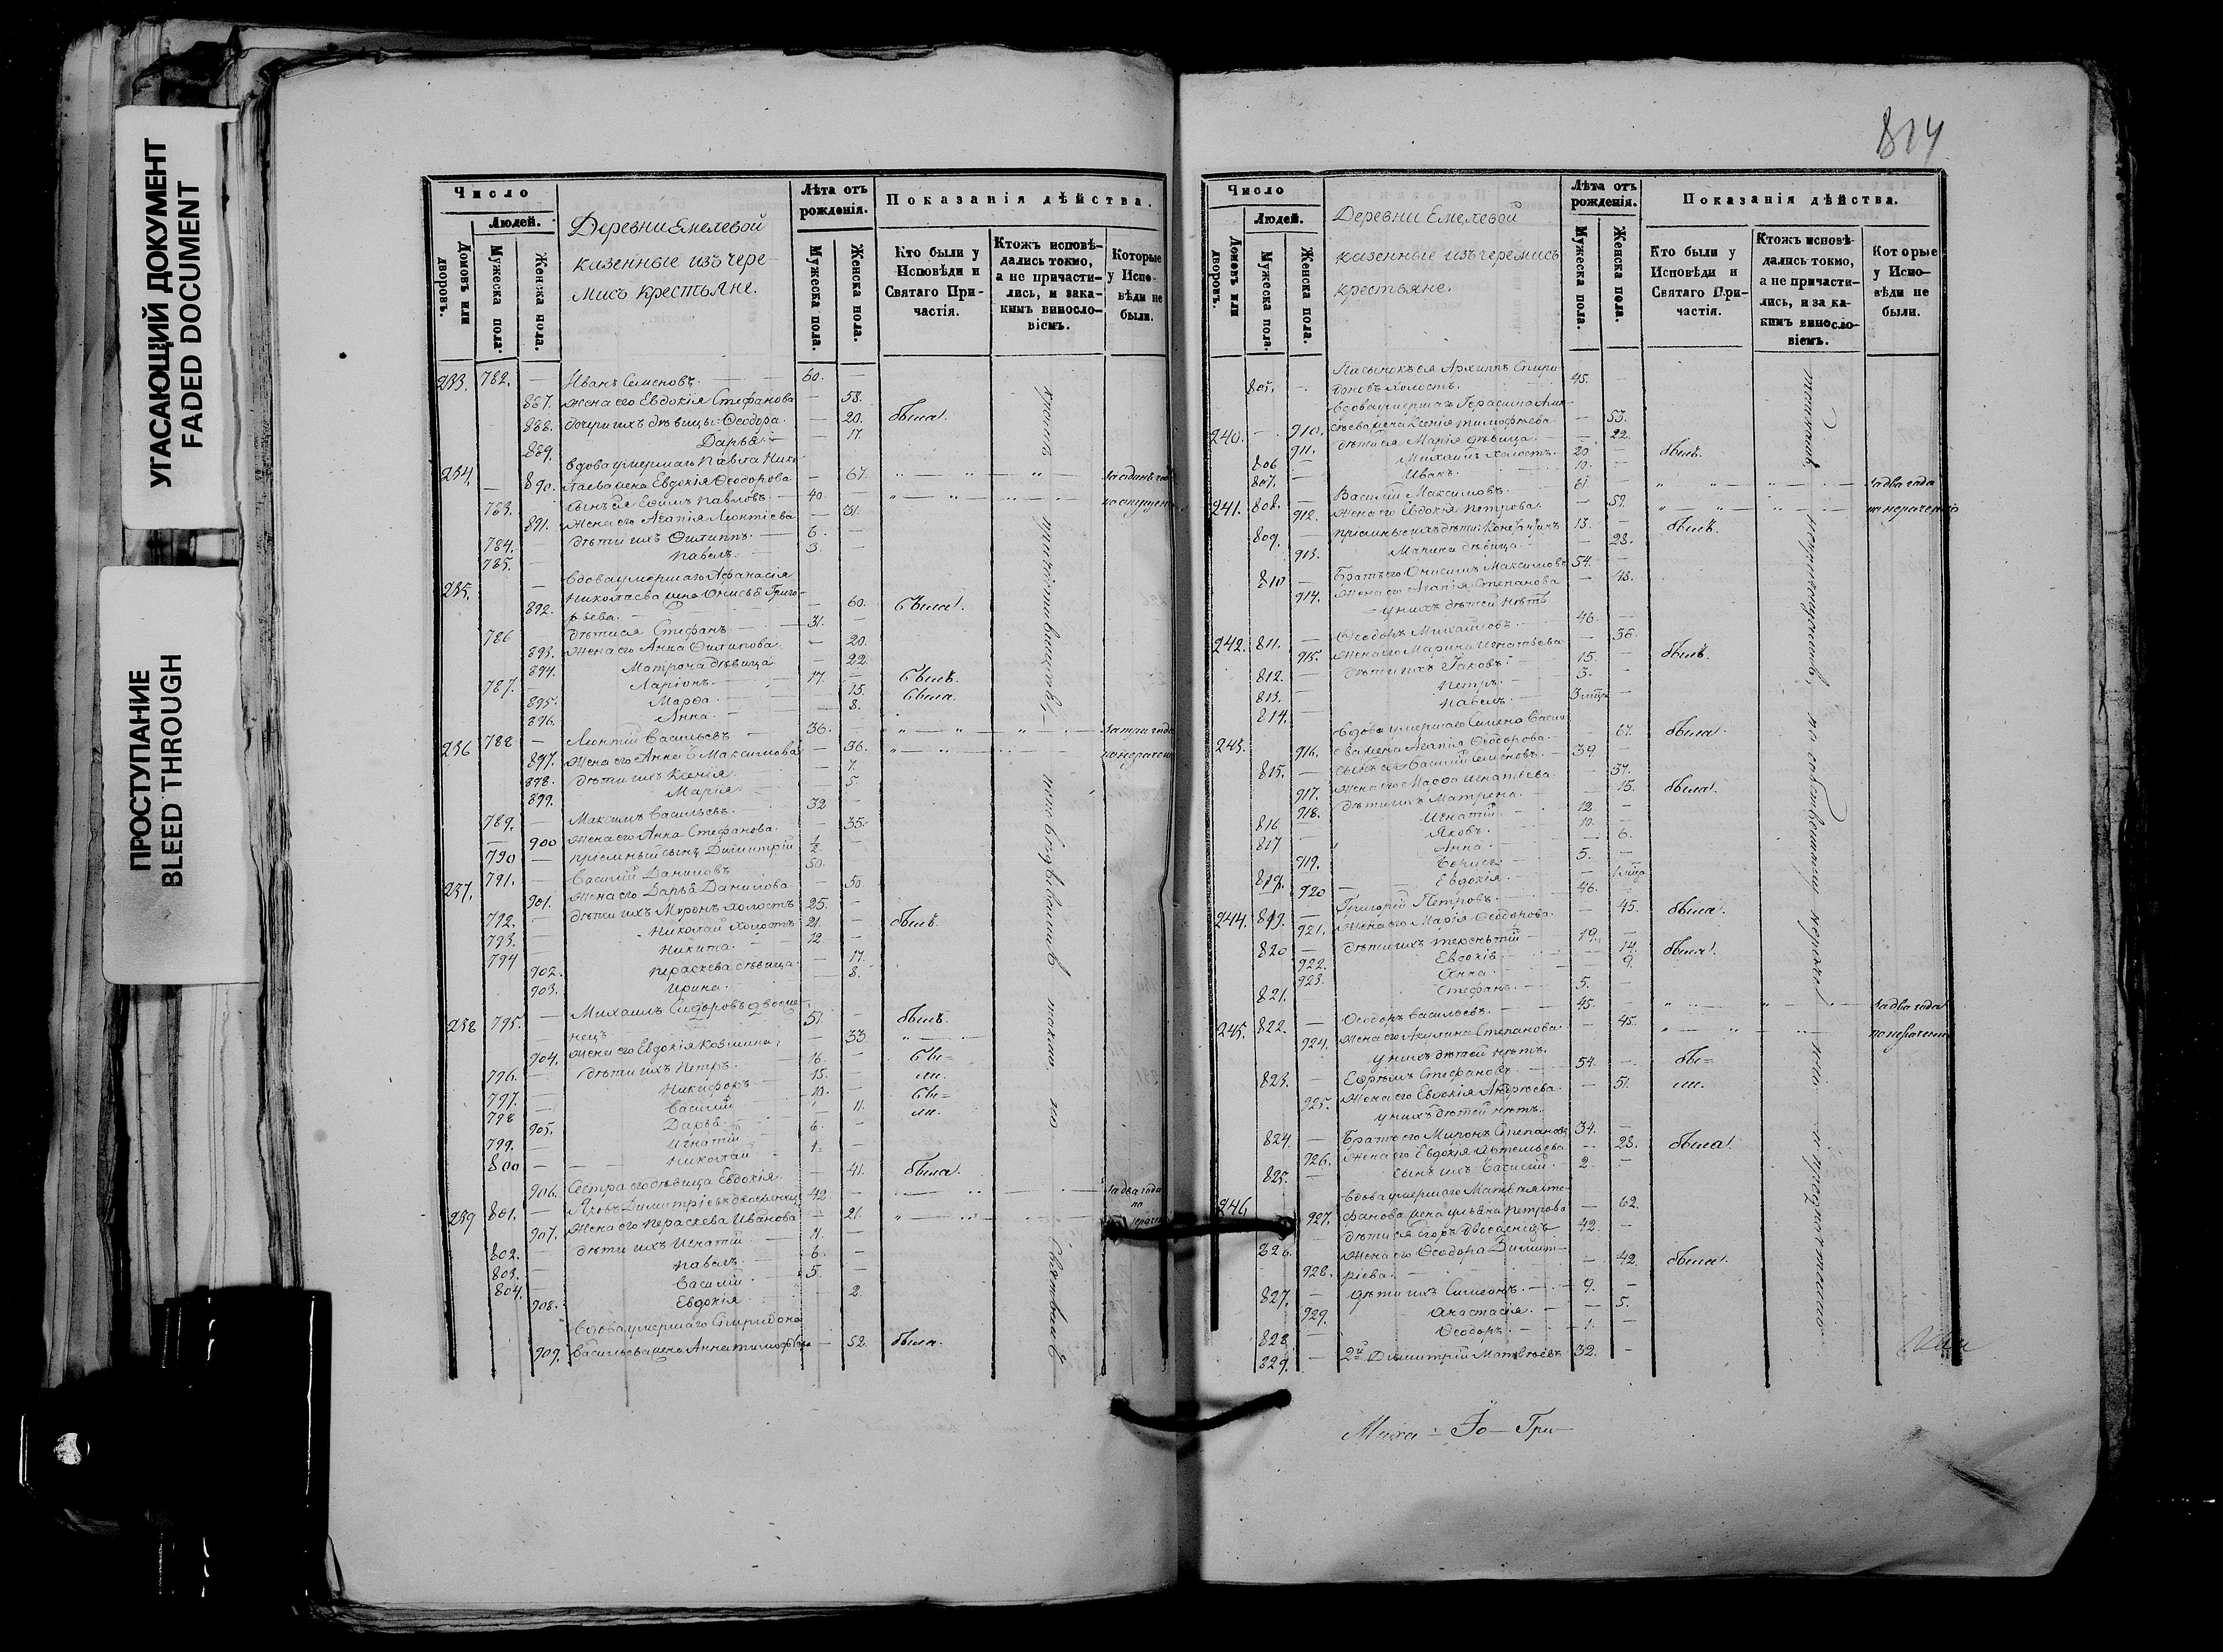 УГАСАЮЩИЙ ДОКУМЕНТ
FADED DOCUMENT
ПРОСТУПАНИЕ
BLEED THROUGH
Число
Людей.
Домовъ или дворовъ.
Мужеска пола.
Женска пола.
Деревни Емелевой
казенные изъ чере-
мисъ крестьяне.
Лѣта отъ рожденія.
Мужеска пола.
Женска пола.
Показанія дѣйства.
Кто были у Исповѣди и Святаго При-частія.
Ктожъ исповѣ-дались токмо, а не причасти-лись, и зака-кимъ винosло-віемъ.
Которые у Испо-вѣди не были.
233. 782. — Иванъ Семеновъ. 60. —
887. Жена его Евдокія Стефанова — 58.
888. дочери ихъ дѣвицы: Ѳеодора. — 20. была.
889. Дарья — 17.
Вдова умершаго Павла Нико-
234. — 890. лаева жена Евдокія Ѳеодорова — 67.
783. сынъ ея Ефимъ Павловъ. 40. —
891. Жена его Агапія Леонтіева — 31.
784. — дѣти ихъ Филиппъ. 6. —
785. — Павелъ. 3. —
235. — Вдова умершаго Афанасія
Николаева жена Онисья Григо-
892. рьева. — 60. была.
786 — дѣти ея Стефанъ 31. —
893. Жена его Анна Филипова — 20.
894. Матрона дѣвица — 22.
787. — Ларіонъ. 17. — былъ.
895. Марѳа. — 15. была.
896. Анна. — 8.
236 788 — Леонтій Васильевъ 36. — за три года
897. Жена его Анна Максимова — 36.
898. дѣти ихъ Ксенія — 7.
899. Марія — 5.
789. — Максимъ Васильевъ. 32 —
900 Жена его Анна Стефанова. — 35.
790 — пріемный сынъ Димитрій
237. 791. — Василій Даниловъ 50. —
901. Жена его Дарья Данилова — 50
792. — дѣти ихъ Миронъ холостъ 25. —
793. — Николай холостъ 21. — былъ.
794 — Никита. 12. —
902. Параскева дѣвица — 17.
903. Ирина. — 8.
238 795. — Михаилъ Сидоровъ двоеже-
нецъ 51. — былъ.
904. Жена его Евдокія Козмина — 33
796. — дѣти ихъ Петръ. 16. — бы=
797. — Никифоръ. 15. — ли.
798 — Василій 10. — бы=
905. Дарья — 11. ли.
799. — Игнатій 6. —
800 — Николай 1. —
906. Сестра его дѣвица Евдокія. — 41. была.
239 801. — Яковъ Димитріевъ двоеженецъ 42. — за два года
907. Жена его Параскева Иванова — 21.
802. — дѣти ихъ Игнатій 11. —
803. — Павелъ. 6. —
804. — Василій 5. —
908. Евдокія — 2.
Вдова умершаго Спиридона
909. Васильева жена Анна Тимофѣева — 52. была.
814
Число
Людей.
Домовъ или дворовъ.
Мужеска пола.
Женска пола.
Деревни Емелевой
казенные изъ черемисъ
крестьяне.
Лѣта отъ рожденія.
Мужеска пола.
Женска пола.
Показанія дѣйства.
Кто были у Исповѣди и Святаго При-частія.
Ктожъ исповѣ-дались токмо, а не причасти-лись, и за ка-кимъ винocло-віемъ.
Которые у Испо-вѣди не были.
Пасынокъ ея Архиппъ Спири-
805. — доновъ холостъ. 45. —
Вдова умершаго Герасима Алек-
240. — 910. сѣева жена Ксенія Тимофѣева — 53.
911. дѣти ея Марія дѣвица — 22.
806 — Михаилъ холостъ. 20 — былъ.
807. — Иванъ. 10. —
241. 808. — Василій Максимовъ. 61 — за два года
912. Жена его Евдокія Петрова — 59. по нераченію
809. — пріемные ихъ дѣти: Константинъ 13. — былъ.
913. Марина дѣвица — 28.
810 — Братъ его Онисимъ Максимовъ 54. —
914. Жена его Агапія Степанова — 48.
у нихъ дѣтей нѣтъ
242. 811. — Ѳеодоръ Михайловъ. 46. —
915. Жена его Марина Игнатьева — 36. былъ.
812. — дѣти ихъ Іаковъ 15. —
813. — Петръ. 3. —
814. — Павелъ. 3 мѣся —
Вдова умершаго Семена Васи-
243. 916. жена Агапія Ѳеодорова — 67. была.
815. — сынъ ея Василій Семеновъ. 39 —
917. Жена его Марѳа Игнатьева — 37.
918. дѣти ихъ Матрена. — 15. была.
816 — Игнатій 12. —
817 — Яковъ. 10. —
919. Анна — 6.
Борисъ 5. —
920 Евдокія —
244. 819. — Григорій Петровъ. 46. —
921. Жена его Марія Ѳеодорова. — 45. была.
820 — дѣти ихъ Терентій 19. —
922. Евдокія — 14. была.
923. Анна — 9.
821. — Стефанъ. 5. —
245. 822. — Ѳеодоръ Васильевъ. 45. — за два года
924. Жена его Акилина Степанова. — 45. по нераченію
у нихъ дѣтей нѣтъ.
823. — Ефремъ Стефановъ 54. — бы=
925. Жена его Евдокія Андреева — 51. ли.
у нихъ дѣтей нѣтъ.
824. — Братъ его Миронъ Степановъ 34. —
926. Жена его Евдокія Артемьева — 28. была.
825. — сынъ ихъ Василій. 2 —
Вдова умершаго Матвея Сте-
246 927. фанова жена Ульяна Петрова — 62.
826. — дѣти ея Егоръ двоеженецъ 42. —
Жена его Ѳеодора Димит-
928. ріева. — 42. была.
827. — дѣти ихъ Симеонъ. 9. —
929. Анастасія. — 5.
828 — Ѳеодоръ. 1. —
829. — 2й Димитрій Матвѣевъ 32. —
Миха — Іо — Гри —